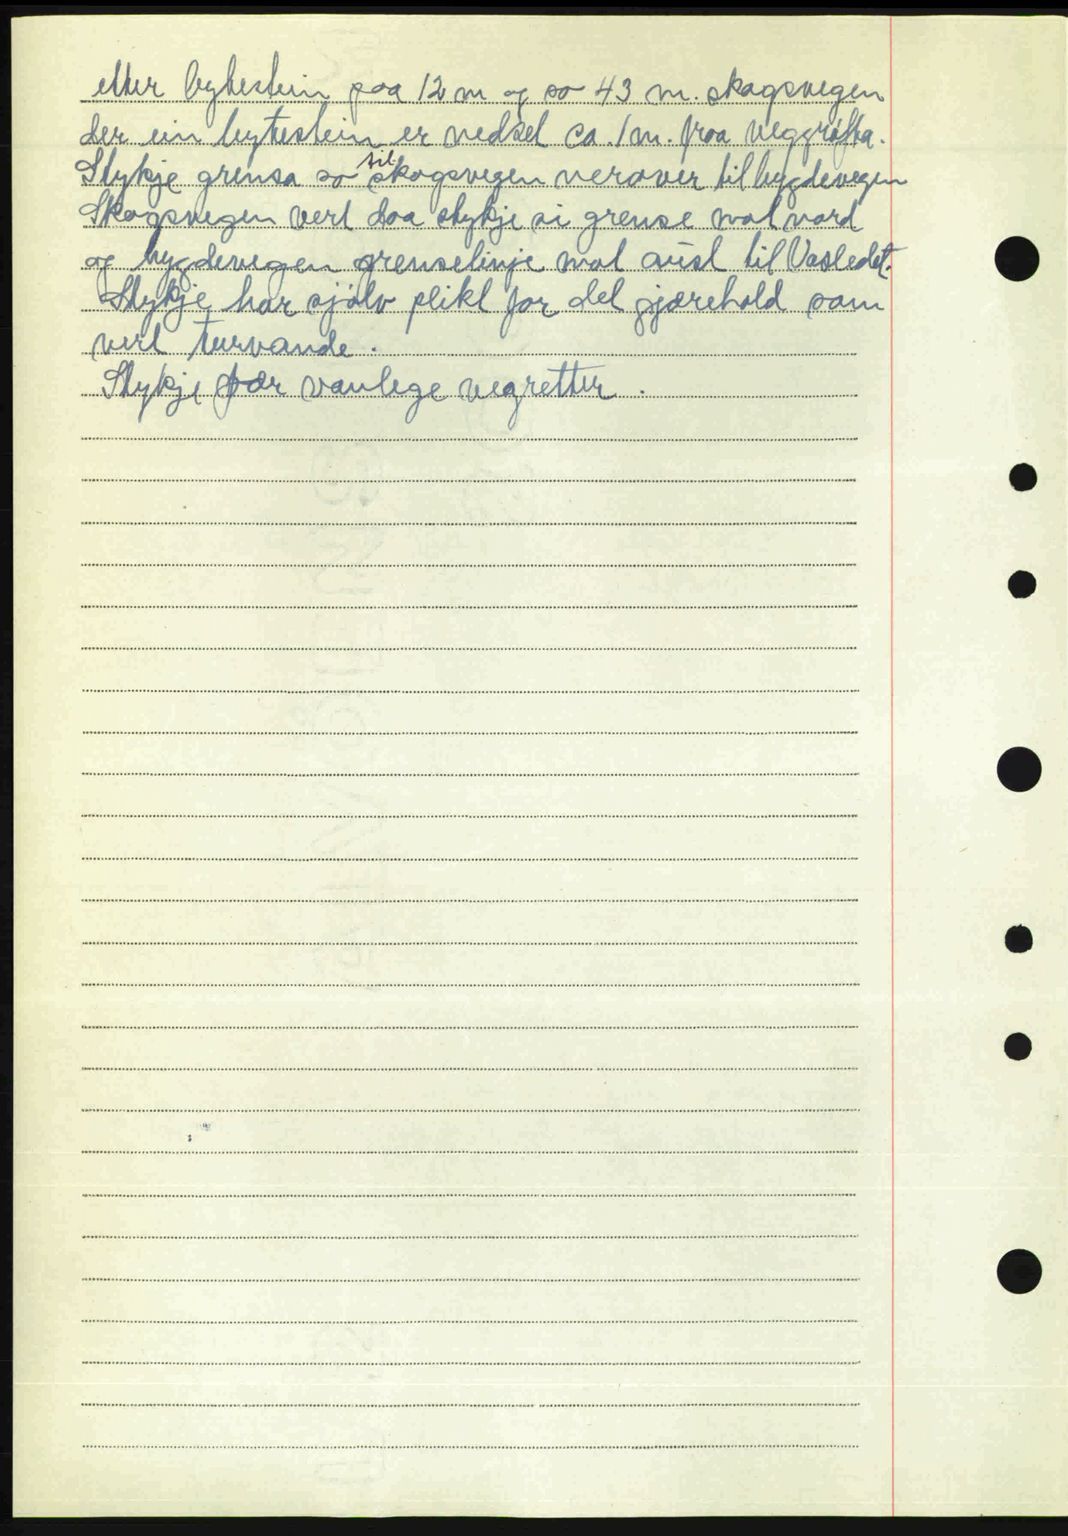 etter bytestein paa 12 m og so 43 m. skogsvegen
der ein bytestein er nedsel ca. 1 m. fraa veggrøfta.
Stykje grensa so til skogsvegen nerover til bygdevegen
Skogsvegen vert daa stykje si grense mot nord
og bygdevegen grenselinje mot aust til Vasledet.
Stykje har sjølv plikt for det gjærehold som
vert turvande.
Stykje fær vanlege vegretter.